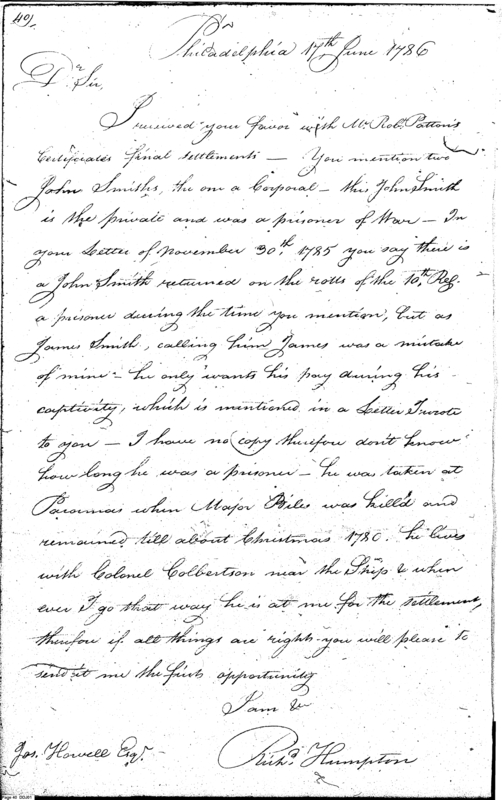 401.
Philadelphia 17th June 1786
Dr. Sir,
I received your favor with Mr. Robt. Patton's
Certificates final settlements — You mention two
John Smiths, the one a Corporal — this John Smith
is the private and was a prisoner of War — In
your Letter of November 30th. 1785 you say there is
a John Smith returned on the rolls of the 10th. Reg.
a prisoner during the time you mention, but as
James Smith, calling him James was a mistake
of mine — he only wants his pay during his
captivity, which is mentioned in a Letter I wrote
to you — I have no copy therefore don't know
how long he was a prisoner — he was taken at
when Major was kill'd and
remained till about Christmas 1780. he lives
with Colonel Colbertson near the Ship & when
ever I go that way he is at me for the settlement,
therefore if all things are right you will please to
send it me the first opportunity
I am &c
Jos. Howell Esqr.
Richd. Humpton